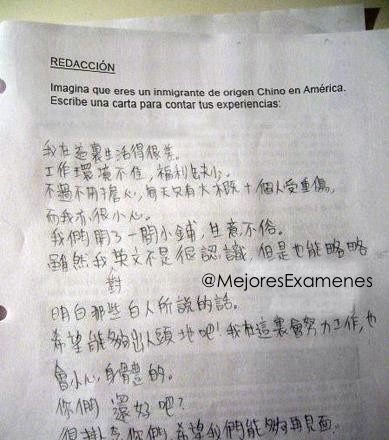 REDACCIÓN
Imagina que eres un inmigrante de origen Chino en América.
Escribe una carta para contar tus experiencias:
我在這裏生活得很差。
工作環境不佳，福利缺少。
不過不用擔心，每天只有大概十個人受重傷，
而我亦很小心。
我們開了一間小鋪，生意不俗。
雖然我對英文不是很認識，但是也能略略
@MejoresExamenes
明白那些白人所說的話。
希望能夠出人頭地吧！我在這裏會努力工作，也
會小心身體的。
你們還好吧？
很掛念你們，希望我們能夠再見面。